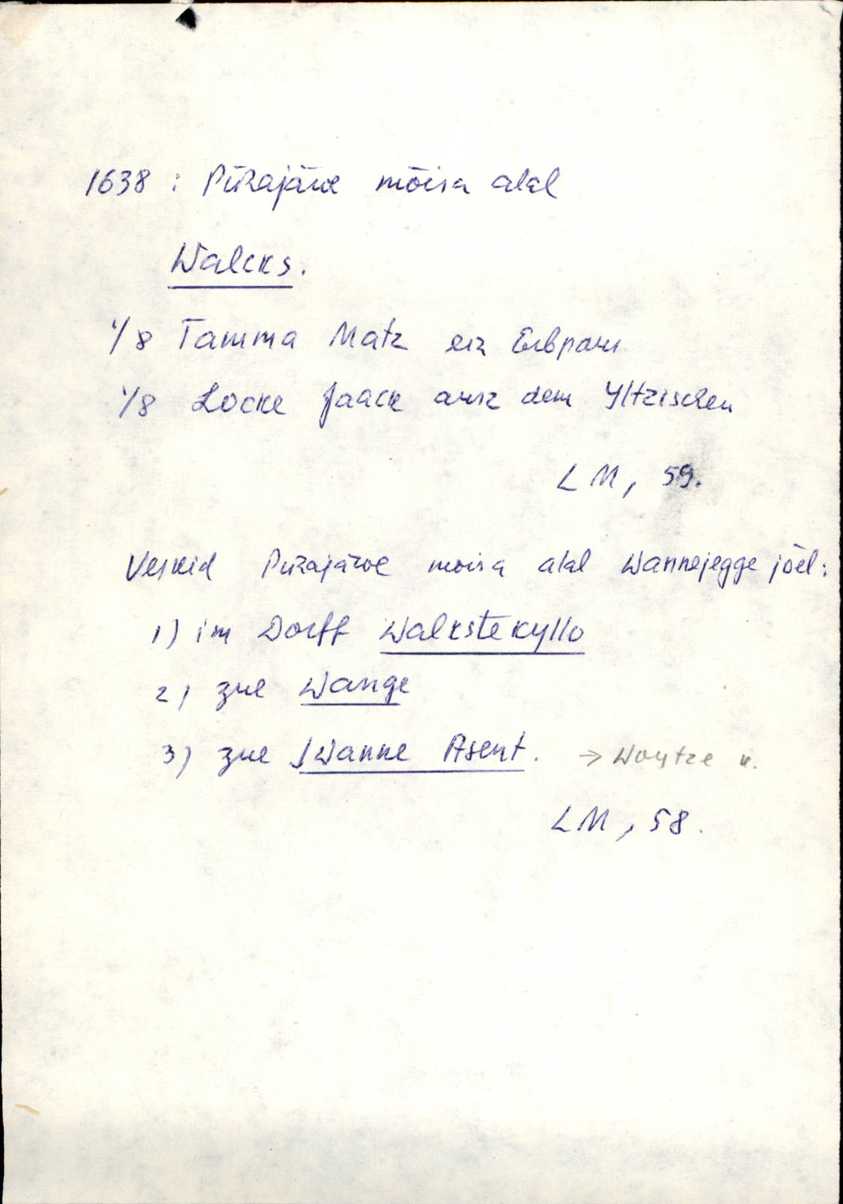 1638 : Pühajärve mõisa alal
Walcks.
1/8 Tamma Matz ein Erbpaur
1/8 Locke Jaack ausz dem Yltzischen
LM, 59.
Veskid Pühajärve moisa alal Wannejegge jõel:
1) im Dorff Walkstekyllo
2) zue Wange
3) zue Wanne Asent. → Woytze k.
LM, 58.